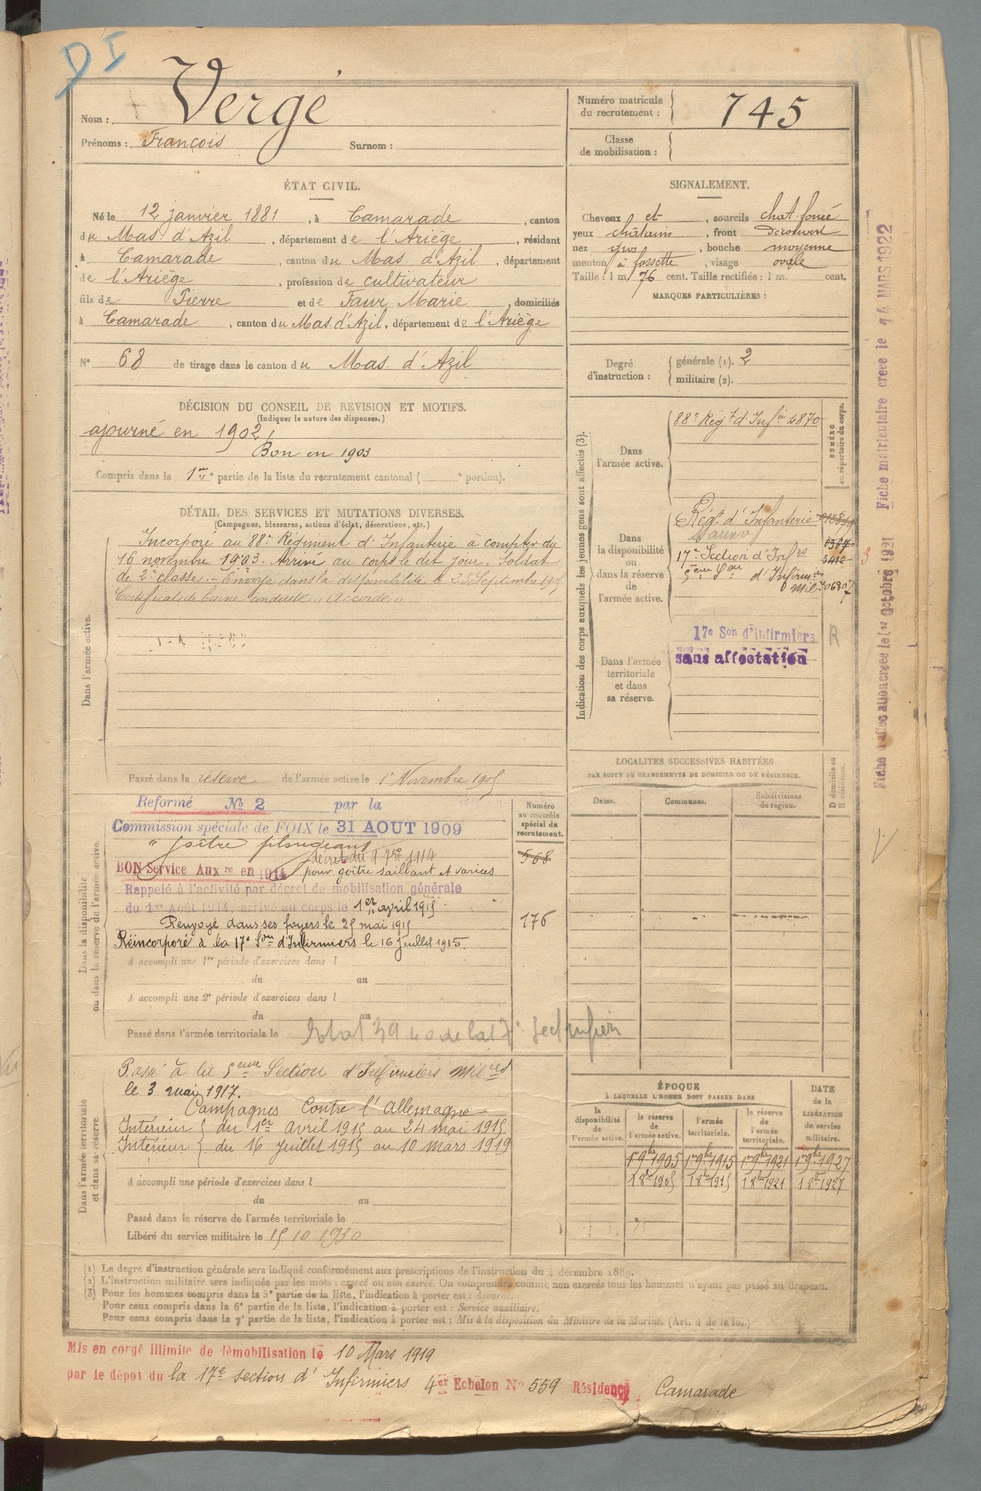 DI
Nom : Vergé
Prénoms : François Surnom :
Numéro matricule du recrutement : 745
Classe de mobilisation :
ÉTAT CIVIL.
Né le 12 janvier 1881, à Camarade, canton
du Mas d'Azil, département de l'Ariège, résidant
à Camarade, canton du Mas d'Azil, département
de l'Ariège, profession de cultivateur
fils de Pierre et de Faur Marie, domiciliés
à Camarade, canton du Mas d'Azil, département de l'Ariège
N° 68 de tirage dans le canton du Mas d'Azil
SIGNALEMENT.
Cheveux et, sourcils chat foncé
yeux châtain, front découvert
nez gros, bouche moyenne
menton à fossette, visage ovale
Taille : 1 m. 76 cent. Taille rectifiée : 1 m. cent.
MARQUES PARTICULIÈRES :
Degré d'instruction : générale (1). 2
militaire (2).
DÉCISION DU CONSEIL DE REVISION ET MOTIFS.
(Indiquer la nature des dispenses.)
ajourné en 1902,
Bon en 1903
Compris dans la 1re partie de la liste du recrutement cantonal ( portion).
DÉTAIL DES SERVICES ET MUTATIONS DIVERSES.
(Campagnes, blessures, actions d'éclat, décorations, etc.)
Dans l'armée active.
Incorporé au 88e Régiment d'Infanterie à compter du
16 novembre 1903. Arrivé au corps le dit jour. Soldat
de 2e classe. - Envoyé dans la disponibilité le Septembre 1905
Certificat de bonne conduite "Accordé"
Passé dans la réserve de l'armée active le 1 Novembre 1905
Indication des corps auxquels les jeunes gens sont affectés (3).
NUMÉRO au répertoire du corps.
Dans l'armée active. 88e Régt d'Infie 4870
Dans la disponibilité ou dans la réserve de l'armée active.
Régt d'Infanterie
17e Section d'Infres
5eme Son d'Infirm
Dans l'armée territoriale et dans sa réserve.
17e Son d'Infirmiers R
sans affectation
LOCALITÉS SUCCESSIVES HABITÉES
PAR SUITE DE CHANGEMENTS DE DOMICILE OU DE RÉSIDENCE.
Dates. Communes. Subdivisions de région. D domicile ou R résidence.
Dans la disponibilité ou dans la réserve de l'armée active.
Numéro au contrôle spécial du recrutement.
568
176
Reformé N° 2 par la
Commission spéciale de FOIX le 31 AOUT 1909
"goître plongeant
BON Service Auxre en 1914 décret du 9 7bre 1914
pour goître saillant & varices
Rappelé à l'activité par décret de mobilisation générale
du 1er Août 1914, arrivé au corps le 1er avril 1915
Renvoyé dans ses foyers le 25 mai 1915
Réincorporé à la 17e Son d'Infirmiers le 16 juillet 1915.
A accompli une 1re période d'exercices dans l
du au
A accompli une 2e période d'exercices dans l
du au
Passé dans l'armée territoriale le
Dans l'armée territoriale et dans sa réserve.
Passé à la 5eme Section d'Infirmiers milres
le 3 mai 1917.
Campagnes Contre l'Allemagne
Intérieur } du 1er avril 1915 au 24 mai 1915
Intérieur } du 16 juillet 1915 au 10 mars 1919
A accompli une période d'exercices dans l
du au
Passé dans la réserve de l'armée territoriale le
Libéré du service militaire le 15 10 1930
ÉPOQUE
À LAQUELLE L'HOMME DOIT PASSER DANS
la disponibilité de l'armée active. la réserve de l'armée active. l'armée territoriale. la réserve de l'armée territoriale.
DATE de la LIBÉRATION du service militaire.
1 9bre 1905 1 9bre 1915 1 9bre 1921 1 9bre 1927
1 8bre 1905 1 8bre 1915 1 8bre 1921 1 8bre 1927
(1) Le degré d'instruction générale sera indiqué conformément aux prescriptions de l'instruction du 4 décembre 1889.
(2) L'instruction militaire sera indiquée par les mots : exercé ou non exercé. On comprendra comme non exercés tous les hommes n'ayant pas passé au drapeau.
(3) Pour les hommes compris dans la 5e partie de la liste, l'indication à porter est : Ajourné.
Pour ceux compris dans la 6e partie de la liste, l'indication à porter est : Service auxiliaire.
Pour ceux compris dans la 7e partie de la liste, l'indication à porter est : Mis à la disposition du Ministre de la Marine. (Art. 4 de la loi.)
Mis en congé illimité de démobilisation le 10 Mars 1919
par le dépôt du la 17e section d'Infirmiers 4er Echelon N° 559 Résidence Camarade
Fiche matriculaire créée le 14 MARS 1922